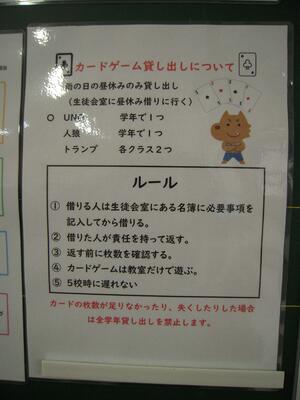 カードゲーム貸し出しについて
雨の日の昼休みのみ貸し出し
(生徒会室に昼休み借りに行く)
○ UNO 学年で1つ
人狼 学年で1つ
トランプ 各クラス2つ
ルール
① 借りる人は生徒会室にある名簿に必要事項を
記入してから借りる。
② 借りた人が責任を持って返す。
③ 返す前に枚数を確認する。
④ カードゲームは教室だけで遊ぶ。
⑤ 5校時に遅れない
カードの枚数が足りなかったり、失くしたりした場合
は全学年貸し出しを禁止します。